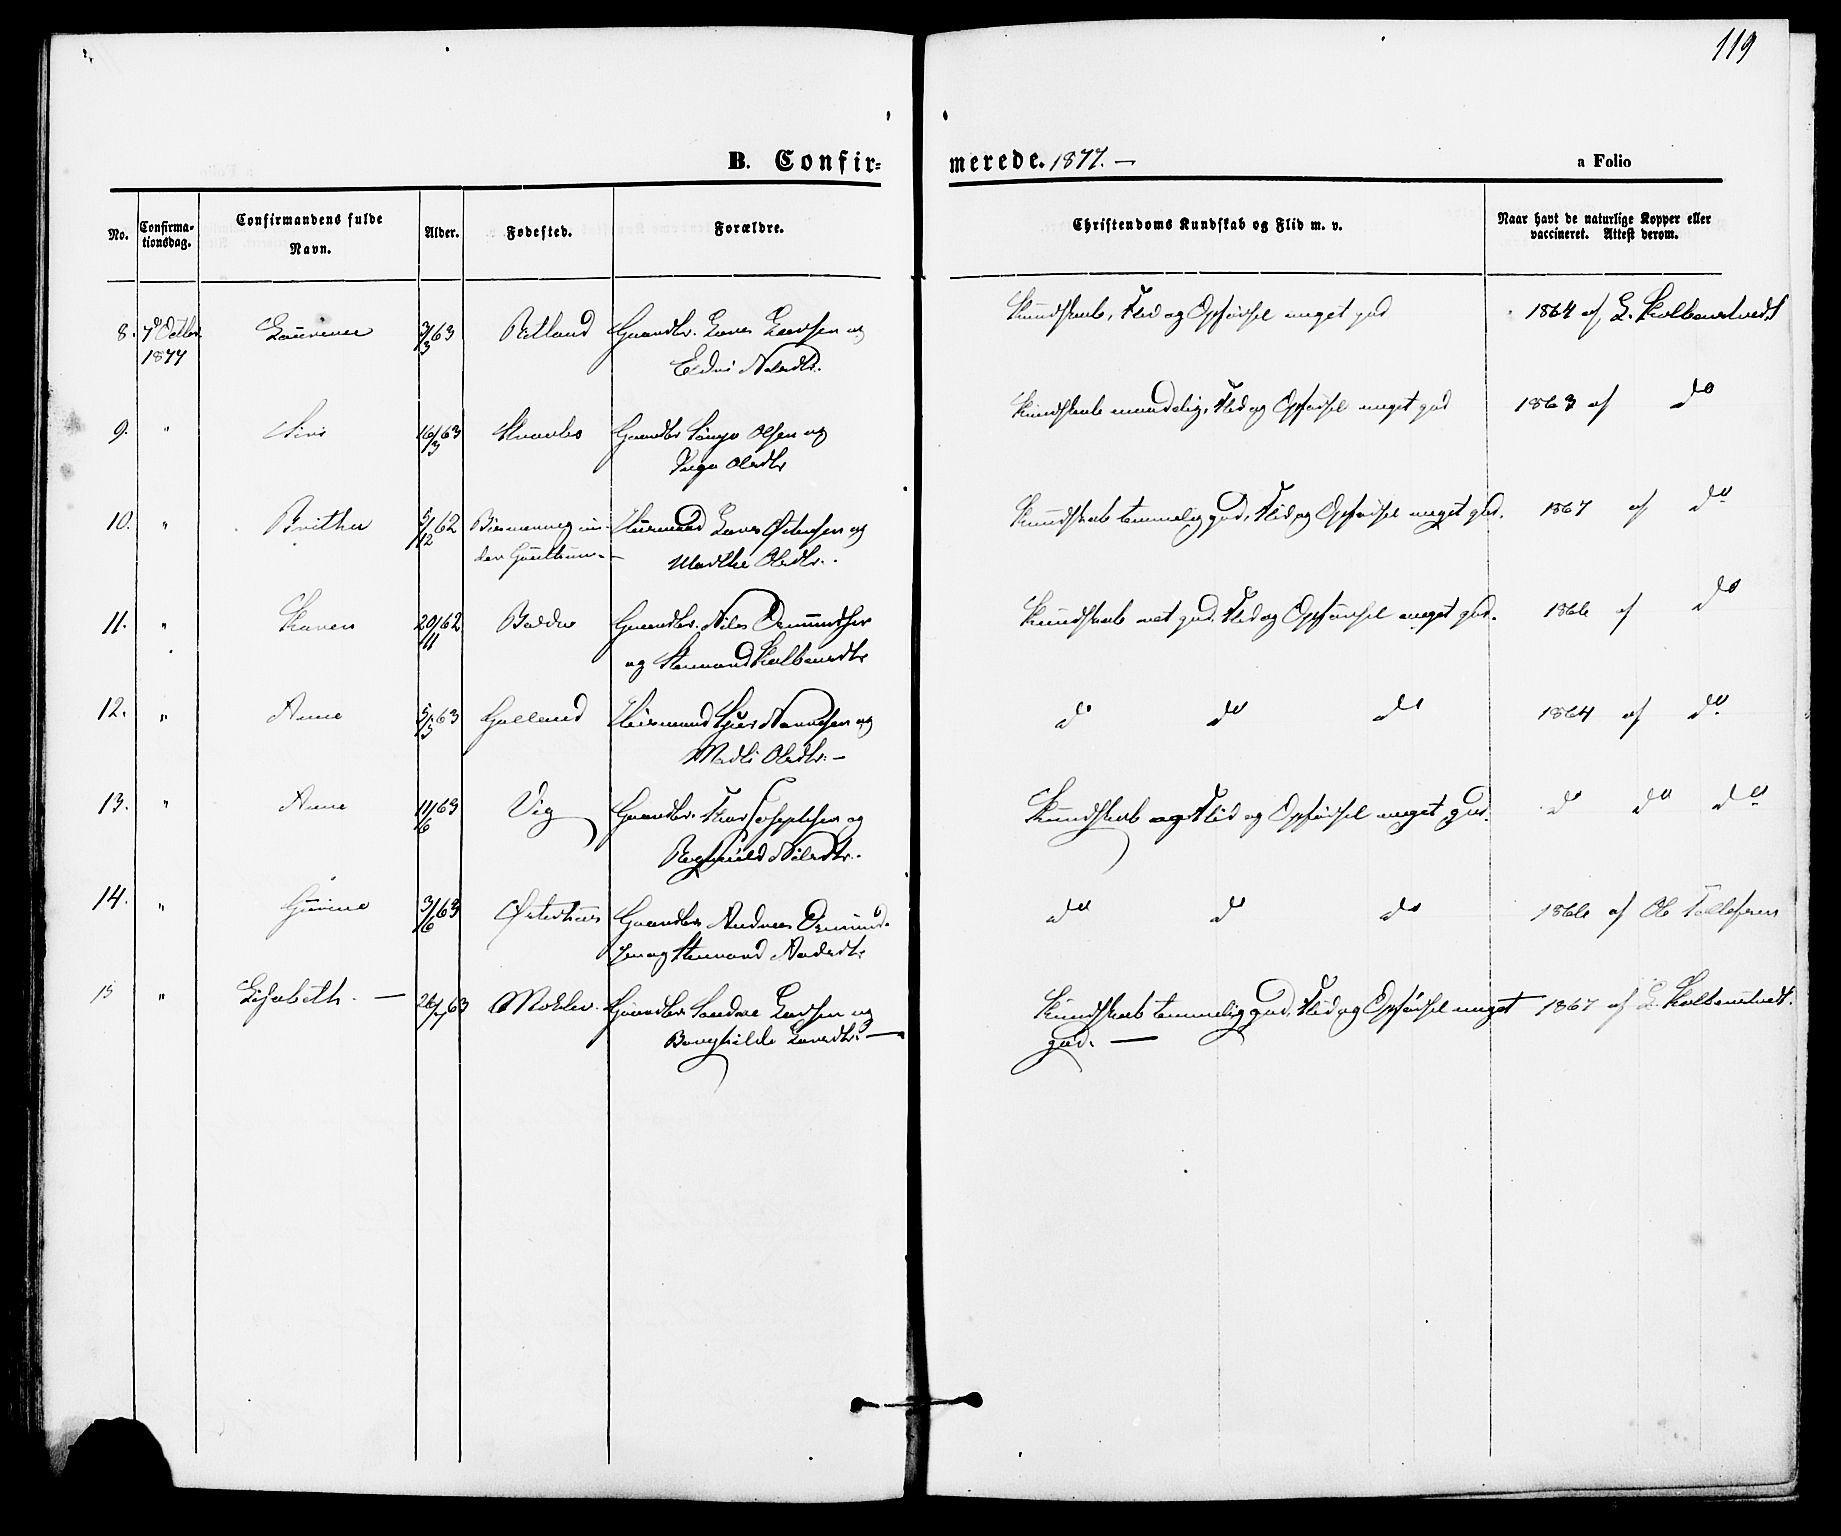 119
B. Confir-
merede. 1877. —
a Folio
No.
Confirma-
tionsdag.
Confirmandens fulde
Navn.
Alder.
Fødested.
Forældre.
Christendoms Kundskab og Flid m. v.
Naar havt de naturlige Kopper eller
vaccineret. Attest derom.
8. 7de Octbr. 3/3 63 Gaardbr. Lars Larsen og
1877
Kundskab, Flid og Opførsel meget god 1864 af L. Kolbenstvedt
9. " Siri 16/3 63 Gaardbr Olsen og
Olsdtr
Kundskab maadelig, Flid og Opførsel meget god 1863 af do
10. " Brithe 5/12 62 Huusmand Lars Østensen og
Marthe Olsdtr.
Kundskab temmelig god, Flid og Opførsel meget god. 1867 af do
11. " Karen 20/11 62 Gaardbr. Nils Osmundsen
og
Kundskab net god. Flid og Opførsel meget god. 1866 af do
12. " Anne 5/5 63 Huusmand og
Olsdtr. —
do do do 1864 af do
13. " Anne 11/6 63 Vig Gaardbr. Josephsen og
Nilsdtr.
Kundskab og Flid og Opførsel meget god. do do do
14. " Gurine 3/6 63 Østerhus Gaardbr. Andreas Osmund-
sen og
do do do 1866 af Ole Tollefsen
15 " Lisabeth. — 26/7 63 Mokler. Gaardbr. Sandve Larsen og
Larsdtr. —
Kundskab temmelig god, Flid og Opførsel meget 1867 af L. Kolbenstvedt.
god. —